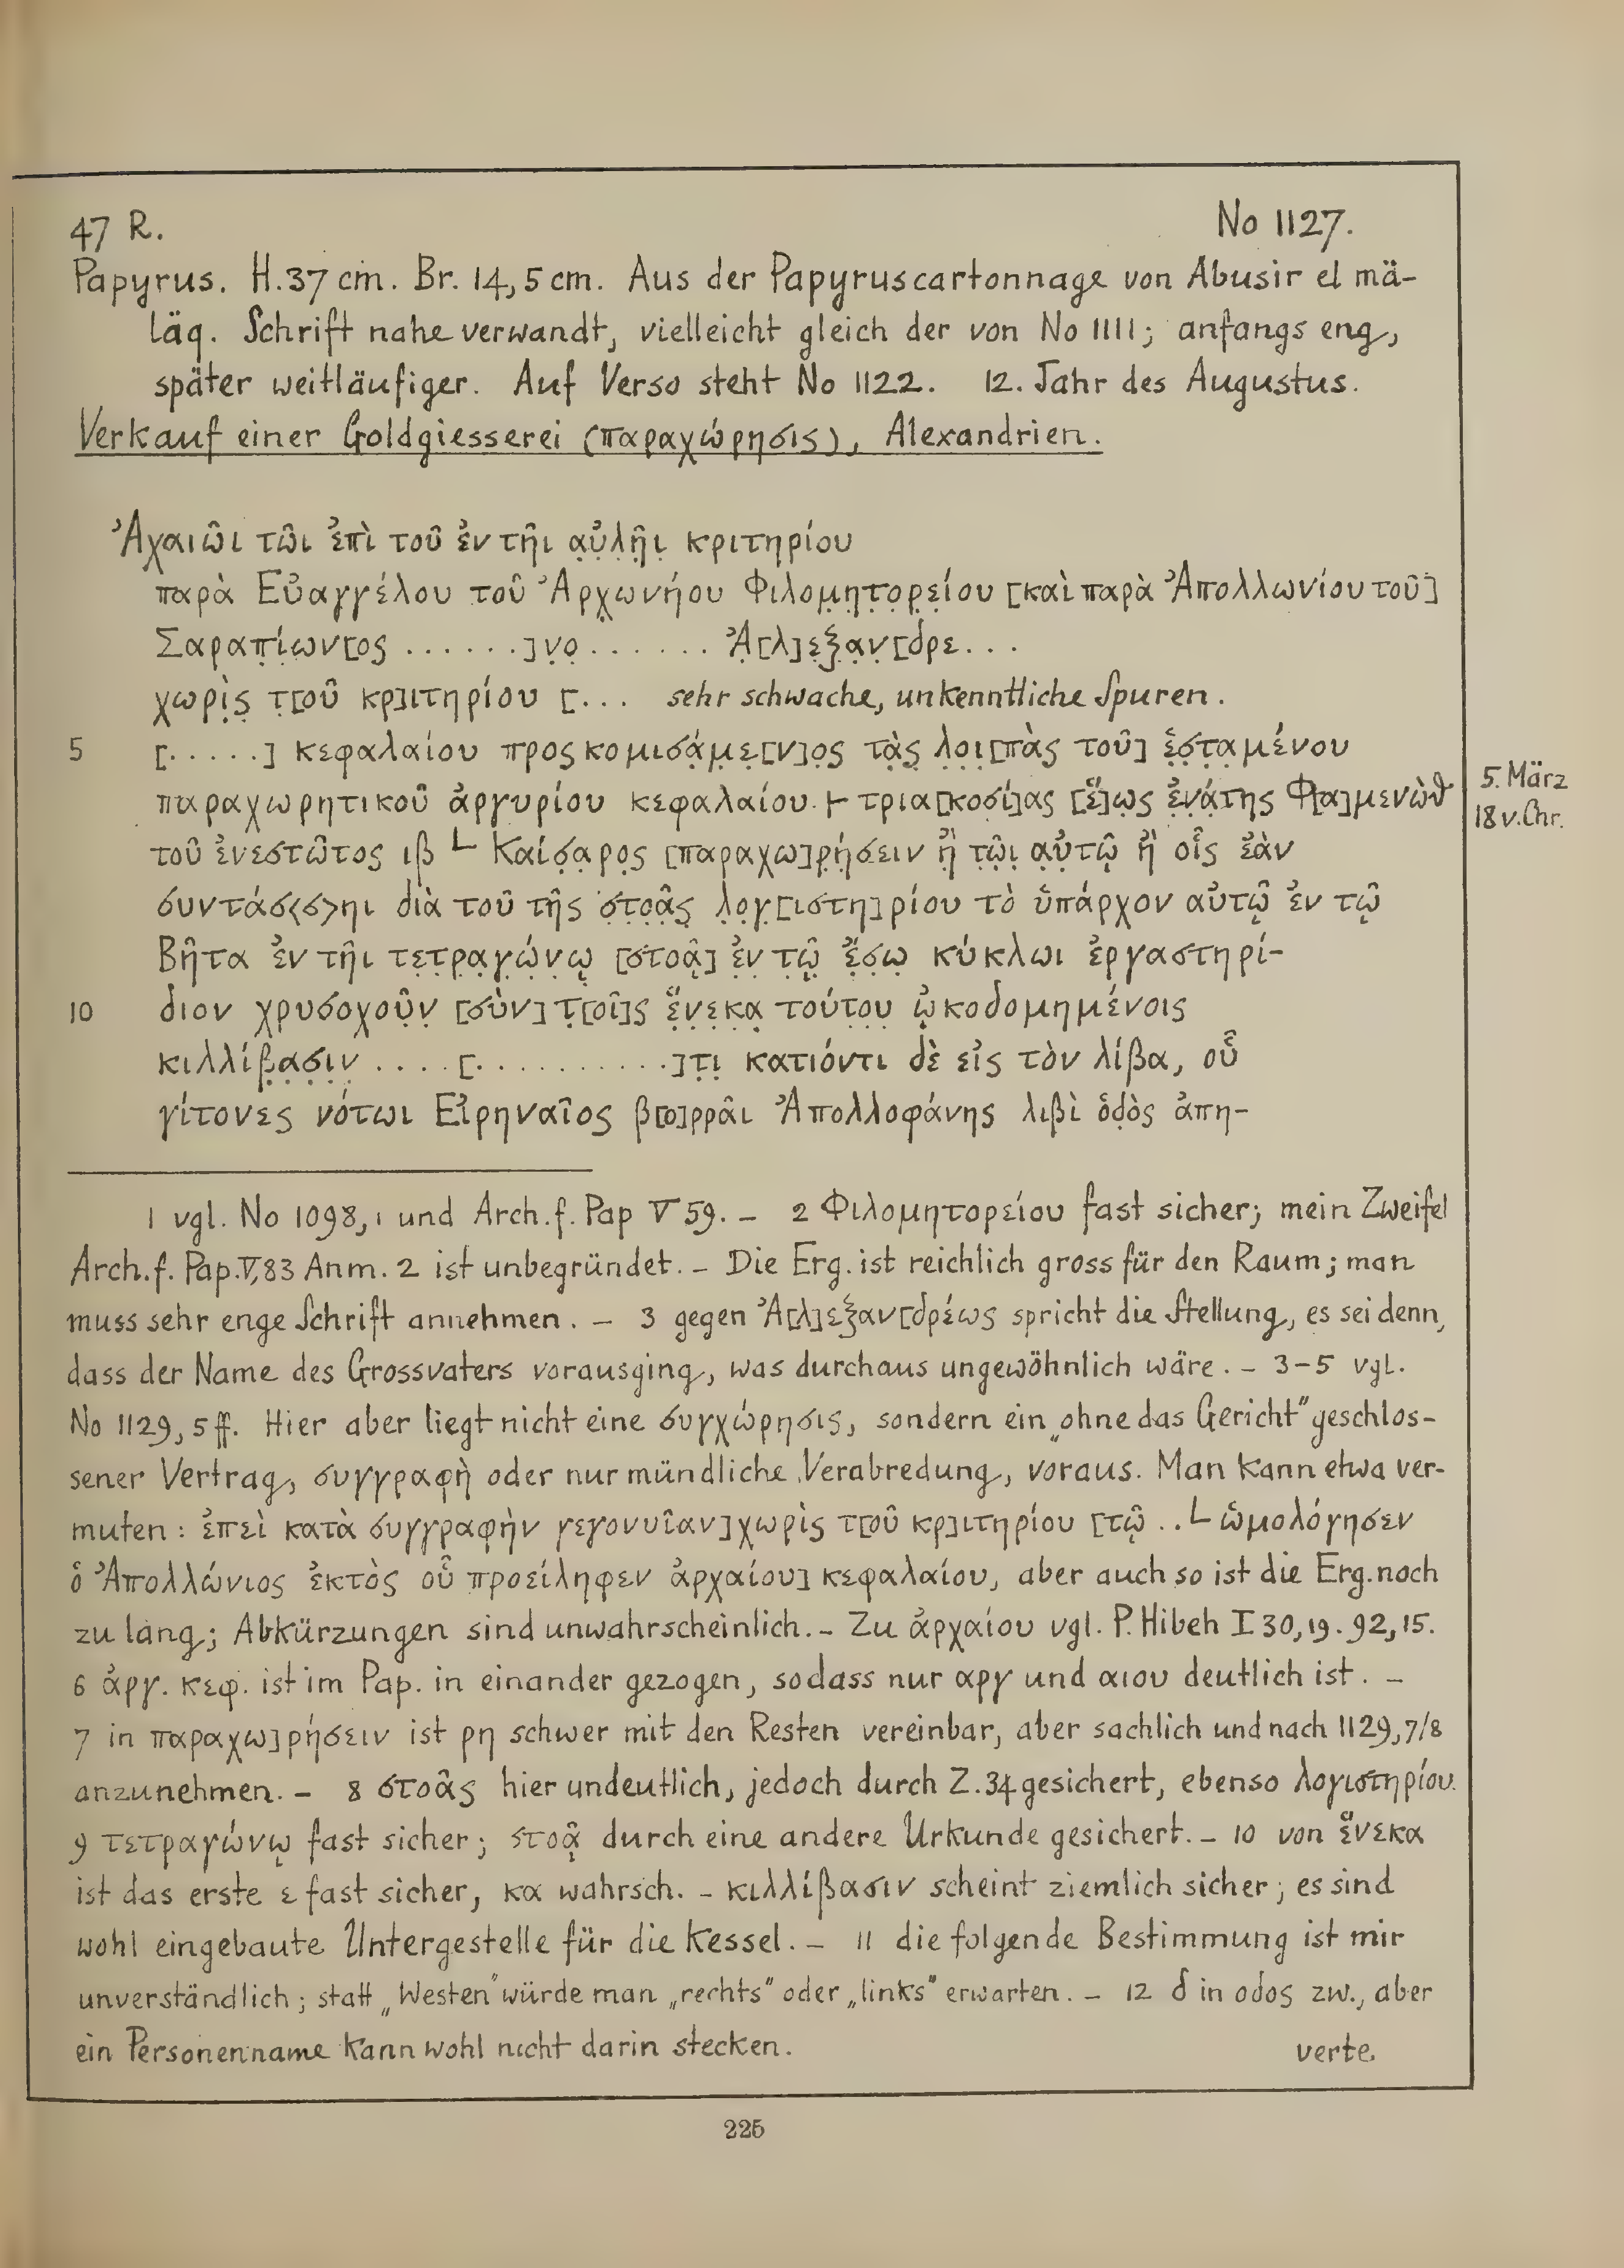 47 R. No 1127.
Papyrus. H. 37 cm. Br. 14,5 cm. Aus der Papyruscartonnage von Abusir el mä-
läq. Schrift nahe verwandt, vielleicht gleich der von No 1111; anfangs eng,
später weitläufiger. Auf Verso steht No 1122. 12. Jahr des Augustus.
Verkauf einer Goldgiesserei (παραχώρησις), Alexandrien.
Ἀχαιῶι τῶι ἐπὶ τοῦ ἐν τῆι α̣ὐ̣λ̣ῆ̣ι̣ κριτηρίου
παρὰ Εὐαγγέλου τοῦ Ἀρχ̣ωνήου Φιλομ̣η̣τ̣ο̣ρ̣ε̣ίου [καὶ παρὰ Ἀπολλωνίου τοῦ]
Σαραπ̣ί̣ων[ος . . . . . . ]ν̣ο̣ . . . . . . Ἀ̣[λ]ε̣ξ̣α̣ν̣[δρε . . .
χωρὶ̣ς̣ τ̣[οῦ κρ]ιτηρίου [. . . sehr schwache, unkenntliche Spuren.
5 [. . . . .] κεφαλαίου προσκομισά̣μ̣ε̣[ν]ο̣ς τὰ̣ς̣ λ̣ο̣ι̣[πὰς τοῦ] ἑ̣σ̣τ̣α̣μένου
παραχωρητικοῦ ἀργυρίου κεφαλαίου ⊢ τρια[κοσί]ας [ἕ]ω̣ς̣ ἐ̣ν̣ά̣της Φ[α]μενὼθ
5. März
18 v. Chr.
τοῦ ἐνεστῶτος ιβ L Καίσ̣α̣ρ̣ο̣ς [παραχω]ρ̣ή̣σειν ἢ̣ τ̣ῶ̣ι̣ α̣ὐ̣τ̣ῷ̣ ἢ̣ οἷς ἐὰν
συντάσ<σ>ηι διὰ τοῦ τῆς σ̣τ̣ο̣ᾶ̣ς̣ λ̣ο̣γ̣[ιστη]ρίου τὸ ὑπάρχον αὐτῷ ἐν τῷ
Βῆτα ἐν τῆι τε̣τ̣ρ̣α̣γ̣ώ̣ν̣ῳ̣ [στοᾷ] ἐ̣ν̣ τ̣ῷ̣ ἔ̣σ̣ω̣ κύκλωι ἐργαστηρί-
10 διον χρυσοχοῦ̣ν̣ [σὺν] τ̣[οῖ]ς ἕ̣ν̣ε̣κ̣α̣ τούτ̣ο̣υ̣ ᾠκοδομημένοις
κιλλίβ̣α̣σ̣ι̣ν̣ . . . . [. . . . . . . . . . .]τ̣ι̣ κατιόντι δὲ εἰς τὸν λίβα, οὗ
γίτονες νότωι Εἰρηναῖος β[ο]ρρᾶι Ἀπολλοφάνης λιβὶ ὁδ̣ὸς ἀπη-
1 vgl. No 1098,1 und Arch. f. Pap V 59. – 2 Φιλομητορείου fast sicher; mein Zweifel
Arch. f. Pap. V, 83 Anm. 2 ist unbegründet. – Die Erg. ist reichlich gross für den Raum; man
muss sehr enge Schrift annehmen. – 3 gegen Ἀ[λ]εξαν[δρέως spricht die Stellung, es sei denn,
dass der Name des Grossvaters vorausging, was durchaus ungewöhnlich wäre. – 3–5 vgl.
No 1129, 5 ff. Hier aber liegt nicht eine συγχώρησις, sondern ein „ohne das Gericht" geschlos-
sener Vertrag, συγγραφὴ oder nur mündliche Verabredung, voraus. Man kann etwa ver-
muten: ἐπεὶ κατὰ συγγραφὴν γεγονυῖαν] χωρὶς τ[οῦ κρ]ιτηρίου [τῷ .. L ὡμολόγησεν
ὁ Ἀπολλώνιος ἐκτὸς οὗ προείληφεν ἀρχαίου] κεφαλαίου, aber auch so ist die Erg. noch
zu lang; Abkürzungen sind unwahrscheinlich. – Zu ἀρχαίου vgl. P. Hibeh I 30,19. 92,15.
6 ἀργ. κεφ. ist im Pap. in einander gezogen, sodass nur αργ und αιου deutlich ist. –
7 in παραχω]ρήσειν ist ρη schwer mit den Resten vereinbar, aber sachlich und nach 1129, 7/8
anzunehmen. – 8 στοᾶς hier undeutlich, jedoch durch Z. 34 gesichert, ebenso λογιστηρίου.
9 τετραγώνῳ fast sicher; στοᾷ durch eine andere Urkunde gesichert. – 10 von ἕνεκα
ist das erste ε fast sicher, κα wahrsch. – κιλλίβασιν scheint ziemlich sicher; es sind
wohl eingebaute Untergestelle für die Kessel. – 11 die folgende Bestimmung ist mir
unverständlich; statt „Westen" würde man „rechts" oder „links" erwarten. – 12 δ in οδος zw., aber
ein Personenname kann wohl nicht darin stecken. verte.
225